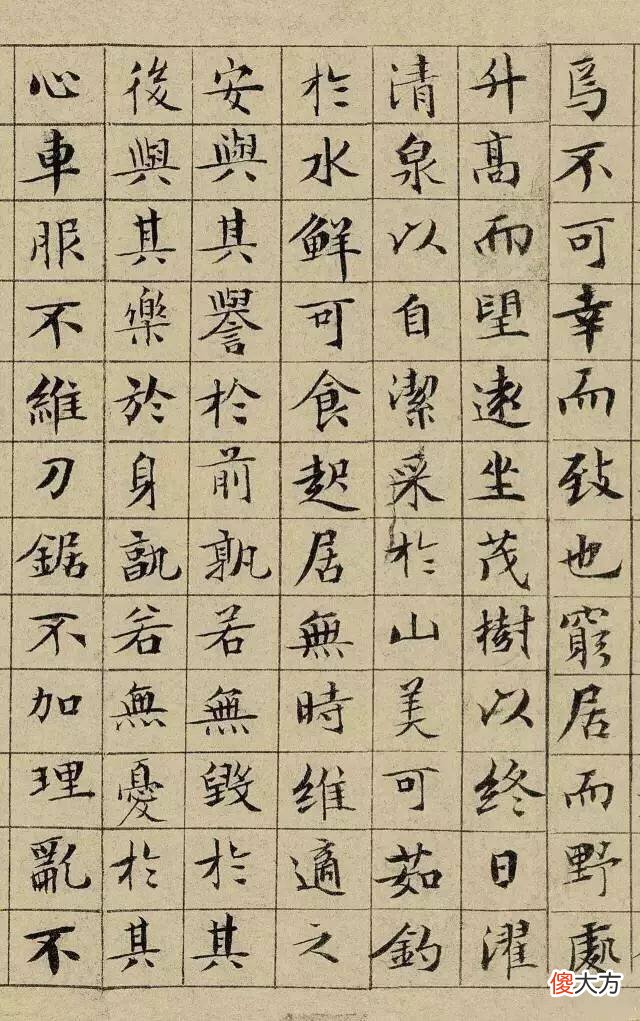 焉不可幸而致也窮居而野處
升高而望遠坐茂樹以終日濯
清泉以自潔采於山美可茹釣
於水鮮可食起居無時維適之
安與其譽於前孰若無毀於其
後與其樂於身孰若無憂於其
心車服不維刀鋸不加理亂不
傻大方